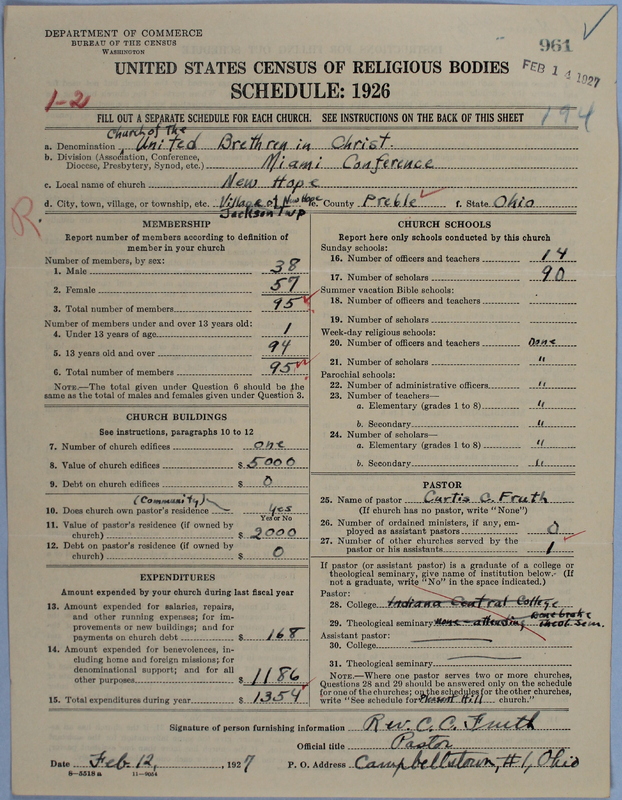 DEPARTMENT OF COMMERCE
BUREAU OF THE CENSUS
WASHINGTON
961
FEB 14 1927
UNITED STATES CENSUS OF RELIGIOUS BODIES
SCHEDULE: 1926
1-2
194
FILL OUT A SEPARATE SCHEDULE FOR EACH CHURCH. SEE INSTRUCTIONS ON THE BACK OF THIS SHEET
a. Denomination Church of the United Brethren in Christ.
b. Division (Association, Conference, Diocese, Presbytery, Synod, etc.) Miami Conference
c. Local name of church New Hope
d. City, town, village, or township, etc. Village of New Hope Jackson Twp e. County Preble f. State Ohio
R.
MEMBERSHIP
Report number of members according to definition of member in your church
Number of members, by sex:
1. Male 38
2. Female 57
3. Total number of members 95
Number of members under and over 13 years old:
4. Under 13 years of age 1
5. 13 years old and over 94
6. Total number of members 95
NOTE.—The total given under Question 6 should be the same as the total of males and females given under Question 3.
CHURCH BUILDINGS
See instructions, paragraphs 10 to 12
7. Number of church edifices one
8. Value of church edifices $ 5000
9. Debt on church edifices $ 0
(Community)
10. Does church own pastor's residence yes
Yes or No
11. Value of pastor's residence (if owned by church) $ 2000
12. Debt on pastor's residence (if owned by church) $ 0
EXPENDITURES
Amount expended by church during last fiscal year
13. Amount expended for salaries, repairs, and other running expenses; for improvements or new buildings; and for payments on church debt $ 168
14. Amount expended for benevolences, including home and foreign missions; for denominational support; and for all other purposes $ 1186
15. Total expenditures during year $ 1354
CHURCH SCHOOLS
Report here only schools conducted by this church
Sunday schools:
16. Number of officers and teachers 14
17. Number of scholars 90
Summer vacation Bible schools:
18. Number of officers and teachers
19. Number of scholars
Week-day religious schools:
20. Number of officers and teachers none
21. Number of scholars "
Parochial schools:
22. Number of administrative officers "
23. Number of teachers—
a. Elementary (grades 1 to 8) "
b. Secondary "
24. Number of scholars—
a. Elementary (grades 1 to 8) "
b. Secondary "
PASTOR
25. Name of pastor Curtis C. Fruth
(If church has no pastor, write "None")
26. Number of ordained ministers, if any, employed as assistant pastors 0
27. Number of other churches served by the pastor or his assistants 1
If pastor (or assistant pastor) is a graduate of a college or theological seminary, give name of institution below. (If not a graduate, write "No" in the space indicated.)
Pastor:
28. College Indiana Central College
29. Theological seminary None - attending Bonebrake Theol. Sem.
Assistant pastor:
30. College
31. Theological seminary
NOTE.—Where one pastor serves two or more churches, Questions 28 and 29 should be answered only on the schedule for one of the churches; on the schedules for the other churches, write "See schedule for Pleasant Hill church."
Signature of person furnishing information Rev. C. C. Fruth
Official title Pastor
Date Feb. 12, 1927 P. O. Address Campbellstown, #1, Ohio
8—5518 a 11—9064